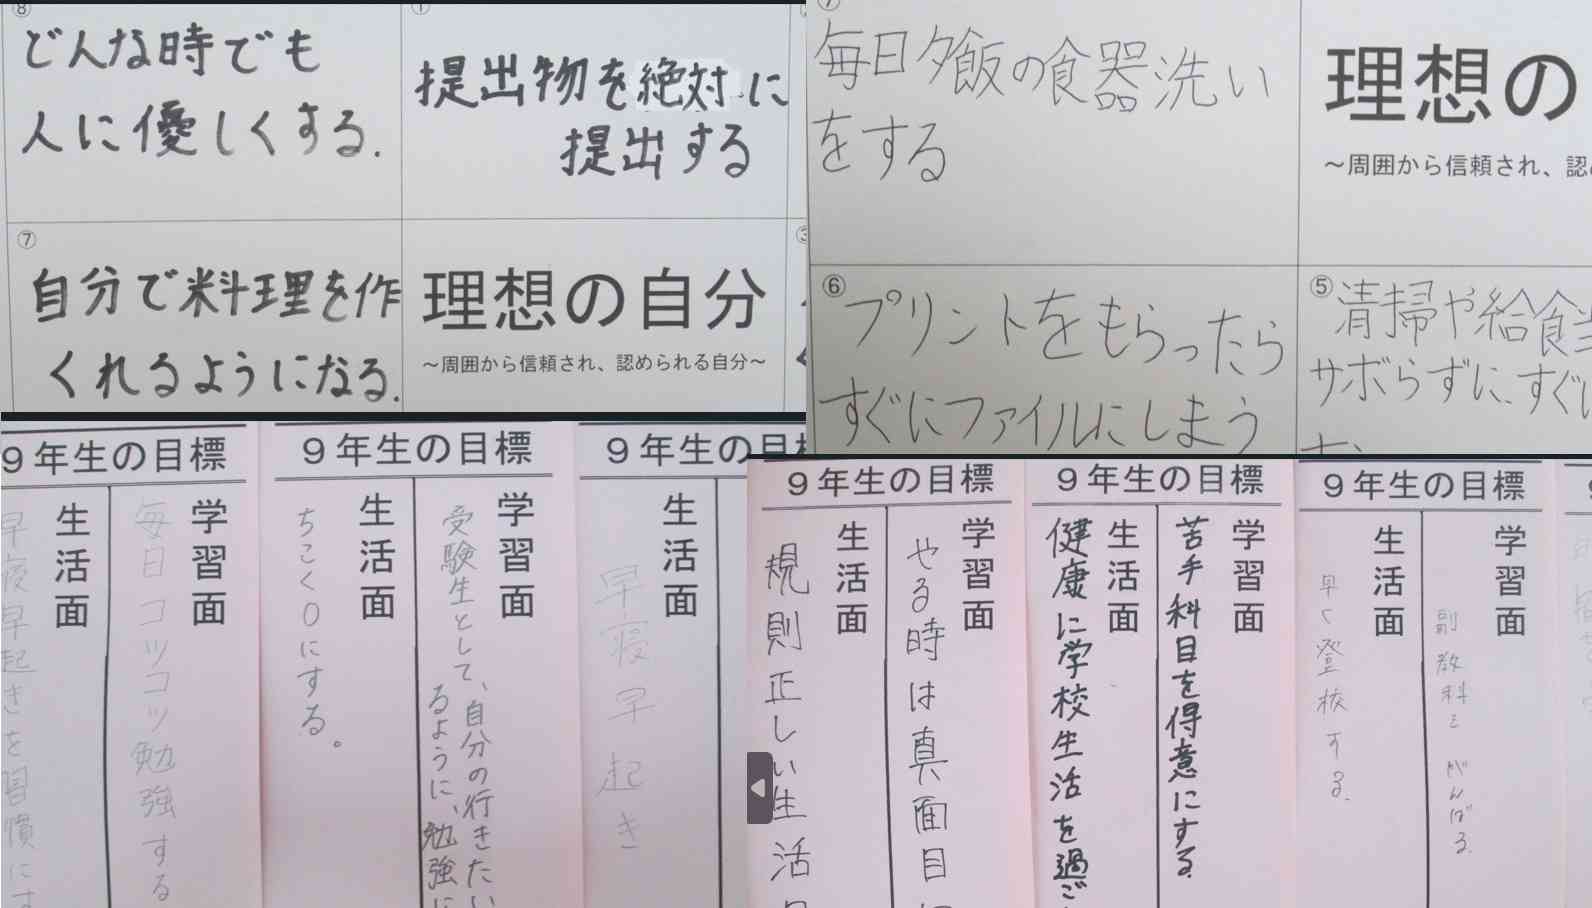 ⑧
どんな時でも
人に優しくする.
①
提出物を絶対に
提出する
⑦
自分で料理を作
くれるようになる.
理想の自分
～周囲から信頼され、認められる自分～
⑦
毎日夕飯の食器洗い
をする
理想の
～周囲から信頼され、認め
⑥
プリントをもらったら
すぐにファイルにしまう
⑤
清掃や給食当
サボらずに、すぐに
9年生の目標
学習面
毎日コツコツ勉強する
生活面
早寝早起きを習慣にす
9年生の目標
学習面
受験生として、自分の行きたい
るように、勉強に
生活面
ちこく0にする。
9年生の目標
生活面
早寝早起き
9年生の目標
学習面
やる時は真面目
生活面
規則正しい生活
9年生の目標
学習面
苦手科目を得意にする.
生活面
健康に学校生活を過ご
9年生の目標
学習面
副教科を がんばる.
生活面
早く登校する.